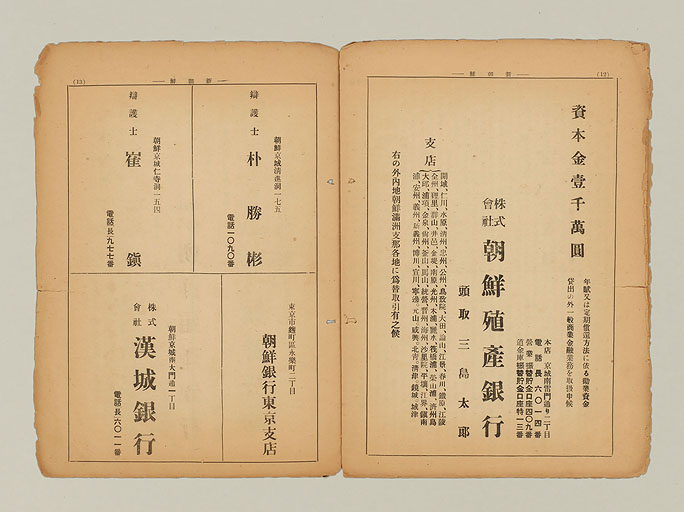 (12)
資本金壹千萬圓
年賦又は定期償還方法に依る勸業資金
貸出の外一般商業金融業務を取扱申候
株式會社 朝鮮殖產銀行
本店 京城南雷門通り二丁目
電話長六〇一四番
營業振替貯金口座四〇九番
頭取 三島太郎
支店
開城、仁川、水原、清州、忠州、公州、鳥致院、大田、論山、江景、春川、鐵原、江陵
右の外內地朝鮮滿洲支那各地に爲替取引有之候
(13)
辯護士 朴勝彬
朝鮮京城清進洞一七五
電話一〇九〇番
辯護士 崔鎭
朝鮮京城仁寺洞一五四
電話長九七七番
東京市麴町區永樂町二丁目
朝鮮銀行東京支店
朝鮮京城南大門通一丁目
株式會社 漢城銀行
電話長六〇一一番